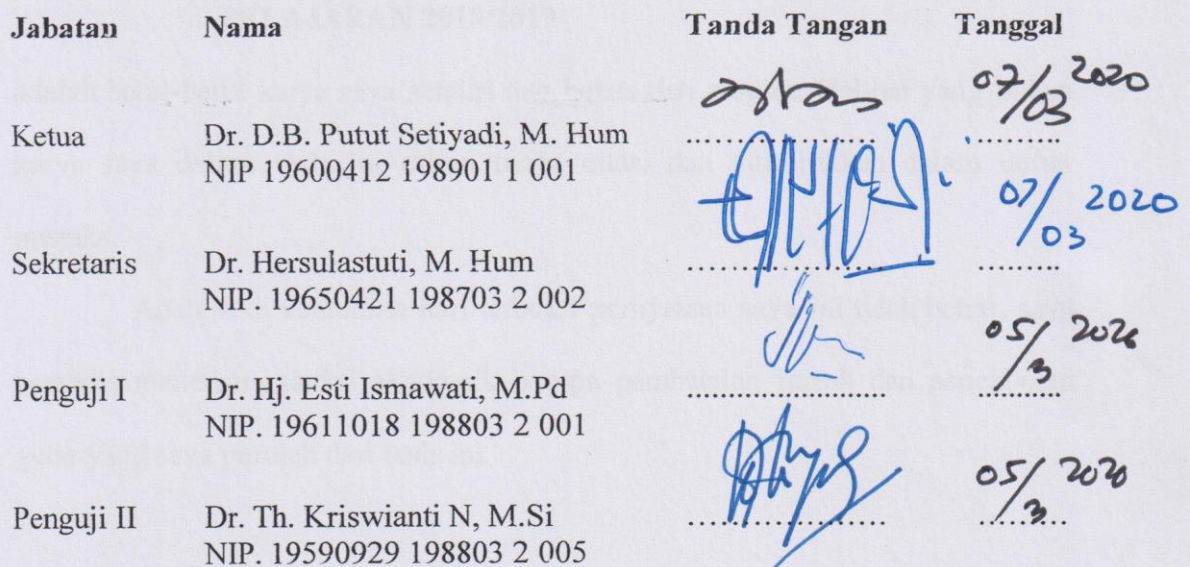 Jabatan Nama Tanda Tangan Tanggal
07/03 2020
Ketua Dr. D.B. Putut Setiyadi, M. Hum
NIP 19600412 198901 1 001
07/03 2020
Sekretaris Dr. Hersulastuti, M. Hum
NIP. 19650421 198703 2 002
05/3 2020
Penguji I Dr. Hj. Esti Ismawati, M.Pd
NIP. 19611018 198803 2 001
05/3 2020
Penguji II Dr. Th. Kriswianti N, M.Si
NIP. 19590929 198803 2 005